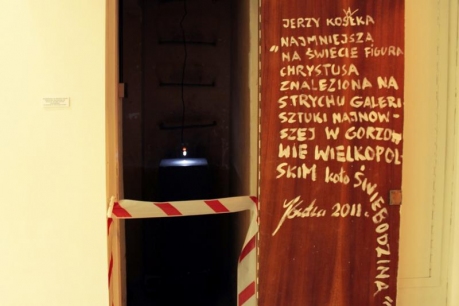 JERZY KOSAŁKA
"NAJMNIEJSZA
NA ŚWIECIE FIGURA
CHRYSTUSA
ZNALEZIONA NA
STRYCHU GALERI
SZTUKI NAJNOW-
SZEJ W GORZO
WIE WIELKOPOL-
SKIM koło ŚWIEBODZINA"
2011 r.